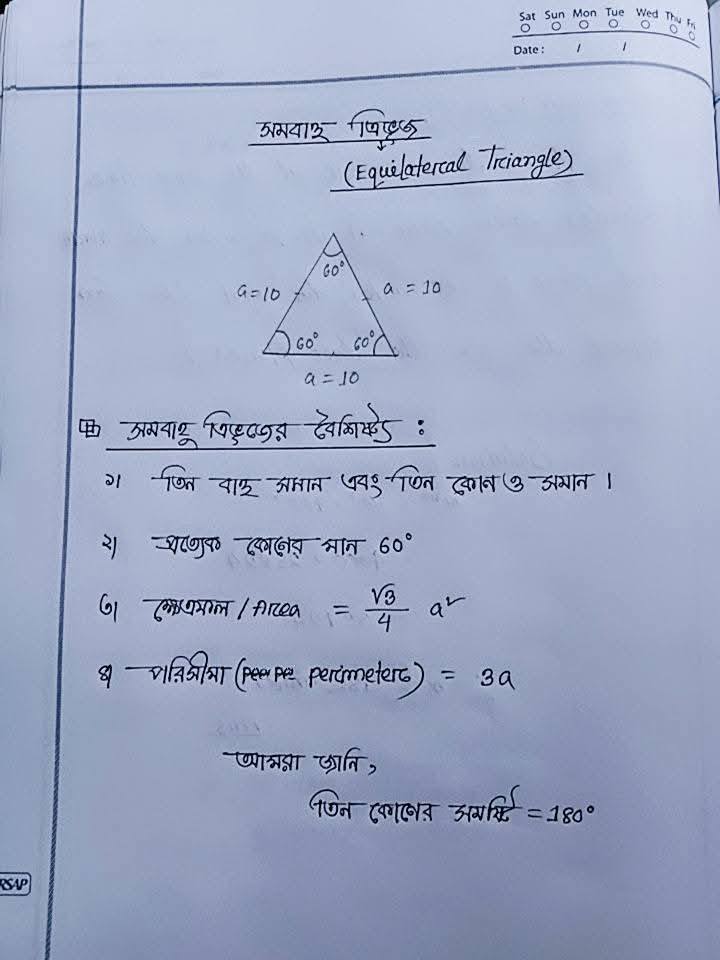 Sat Sun Mon Tue Wed Thu Fri
Date: / /
সমবাহু ত্রিভুজ
(Equilateral Triangle)
60°
a=10 a = 10
60° 60°
a = 10
সমবাহু ত্রিভুজের বৈশিষ্ট্য :
১। তিন বাহু সমান এবং তিন কোন ও সমান ।
২। প্রত্যেক কোনের মান 60°
৩। ক্ষেত্রফল / Area = √3/4 a²
৪। পরিসীমা ( perimeter) = 3a
আমরা জানি,
তিন কোণের সমষ্টি = 180°
RSAP